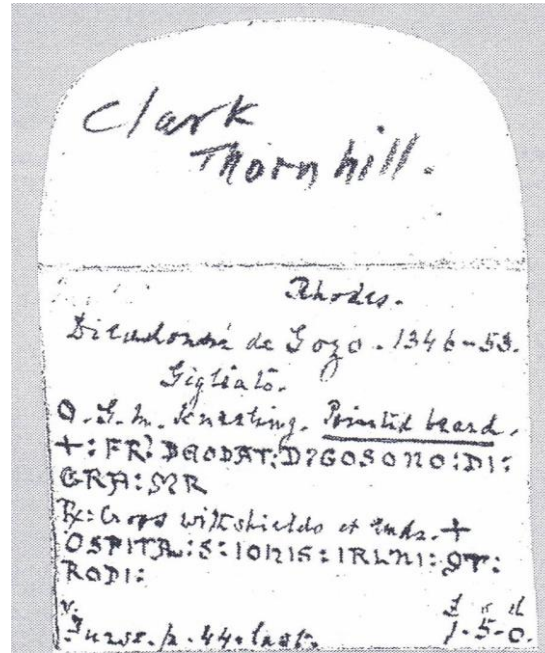 Clark
Thornhill.
Rhodes.
Dieudonné de Gozo. 1346-53.
Gigliato.
O. G. M. Kneeling. Pointed beard.
+: FR? DEODAT: D?GOSONO: DI:
GRA: MR
Rx: Cross with shields at ends. +
OSPITA: S: IOHIS: IRLNI: QT:
RODI:
v.
Furse. p. 44. last.
£ s d
1-5-0.